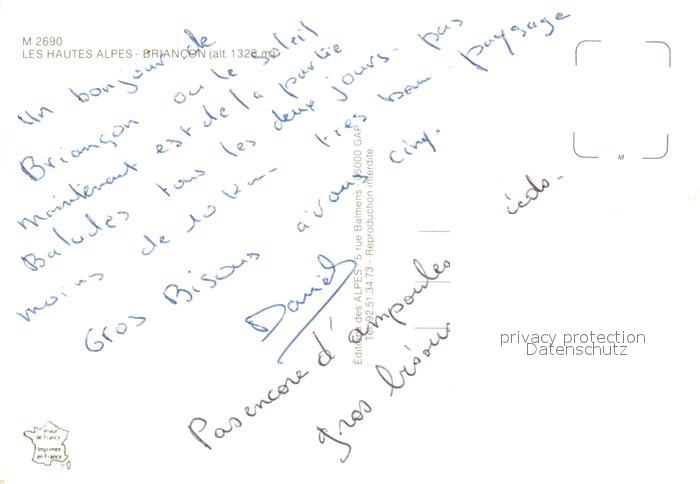 M 2690
LES HAUTES ALPES - BRIANÇON (alt. 1326 m)
Un bonjour de
Briançon ou le soleil
maintenant est de la partie
Balades tous les deux jours - pas
moins de 10 km - très beau paysage
Gros Bisous à vous cinq.
Daniel
Pas encore d'ampoules
ieds-
gros bisou
Éditions des ALPES - 5 rue Balmens - 05000 GAP
Tél. 92.51.34.73 - Reproduction interdite
M
privacy protection
Datenschutz
Imprimée
en France